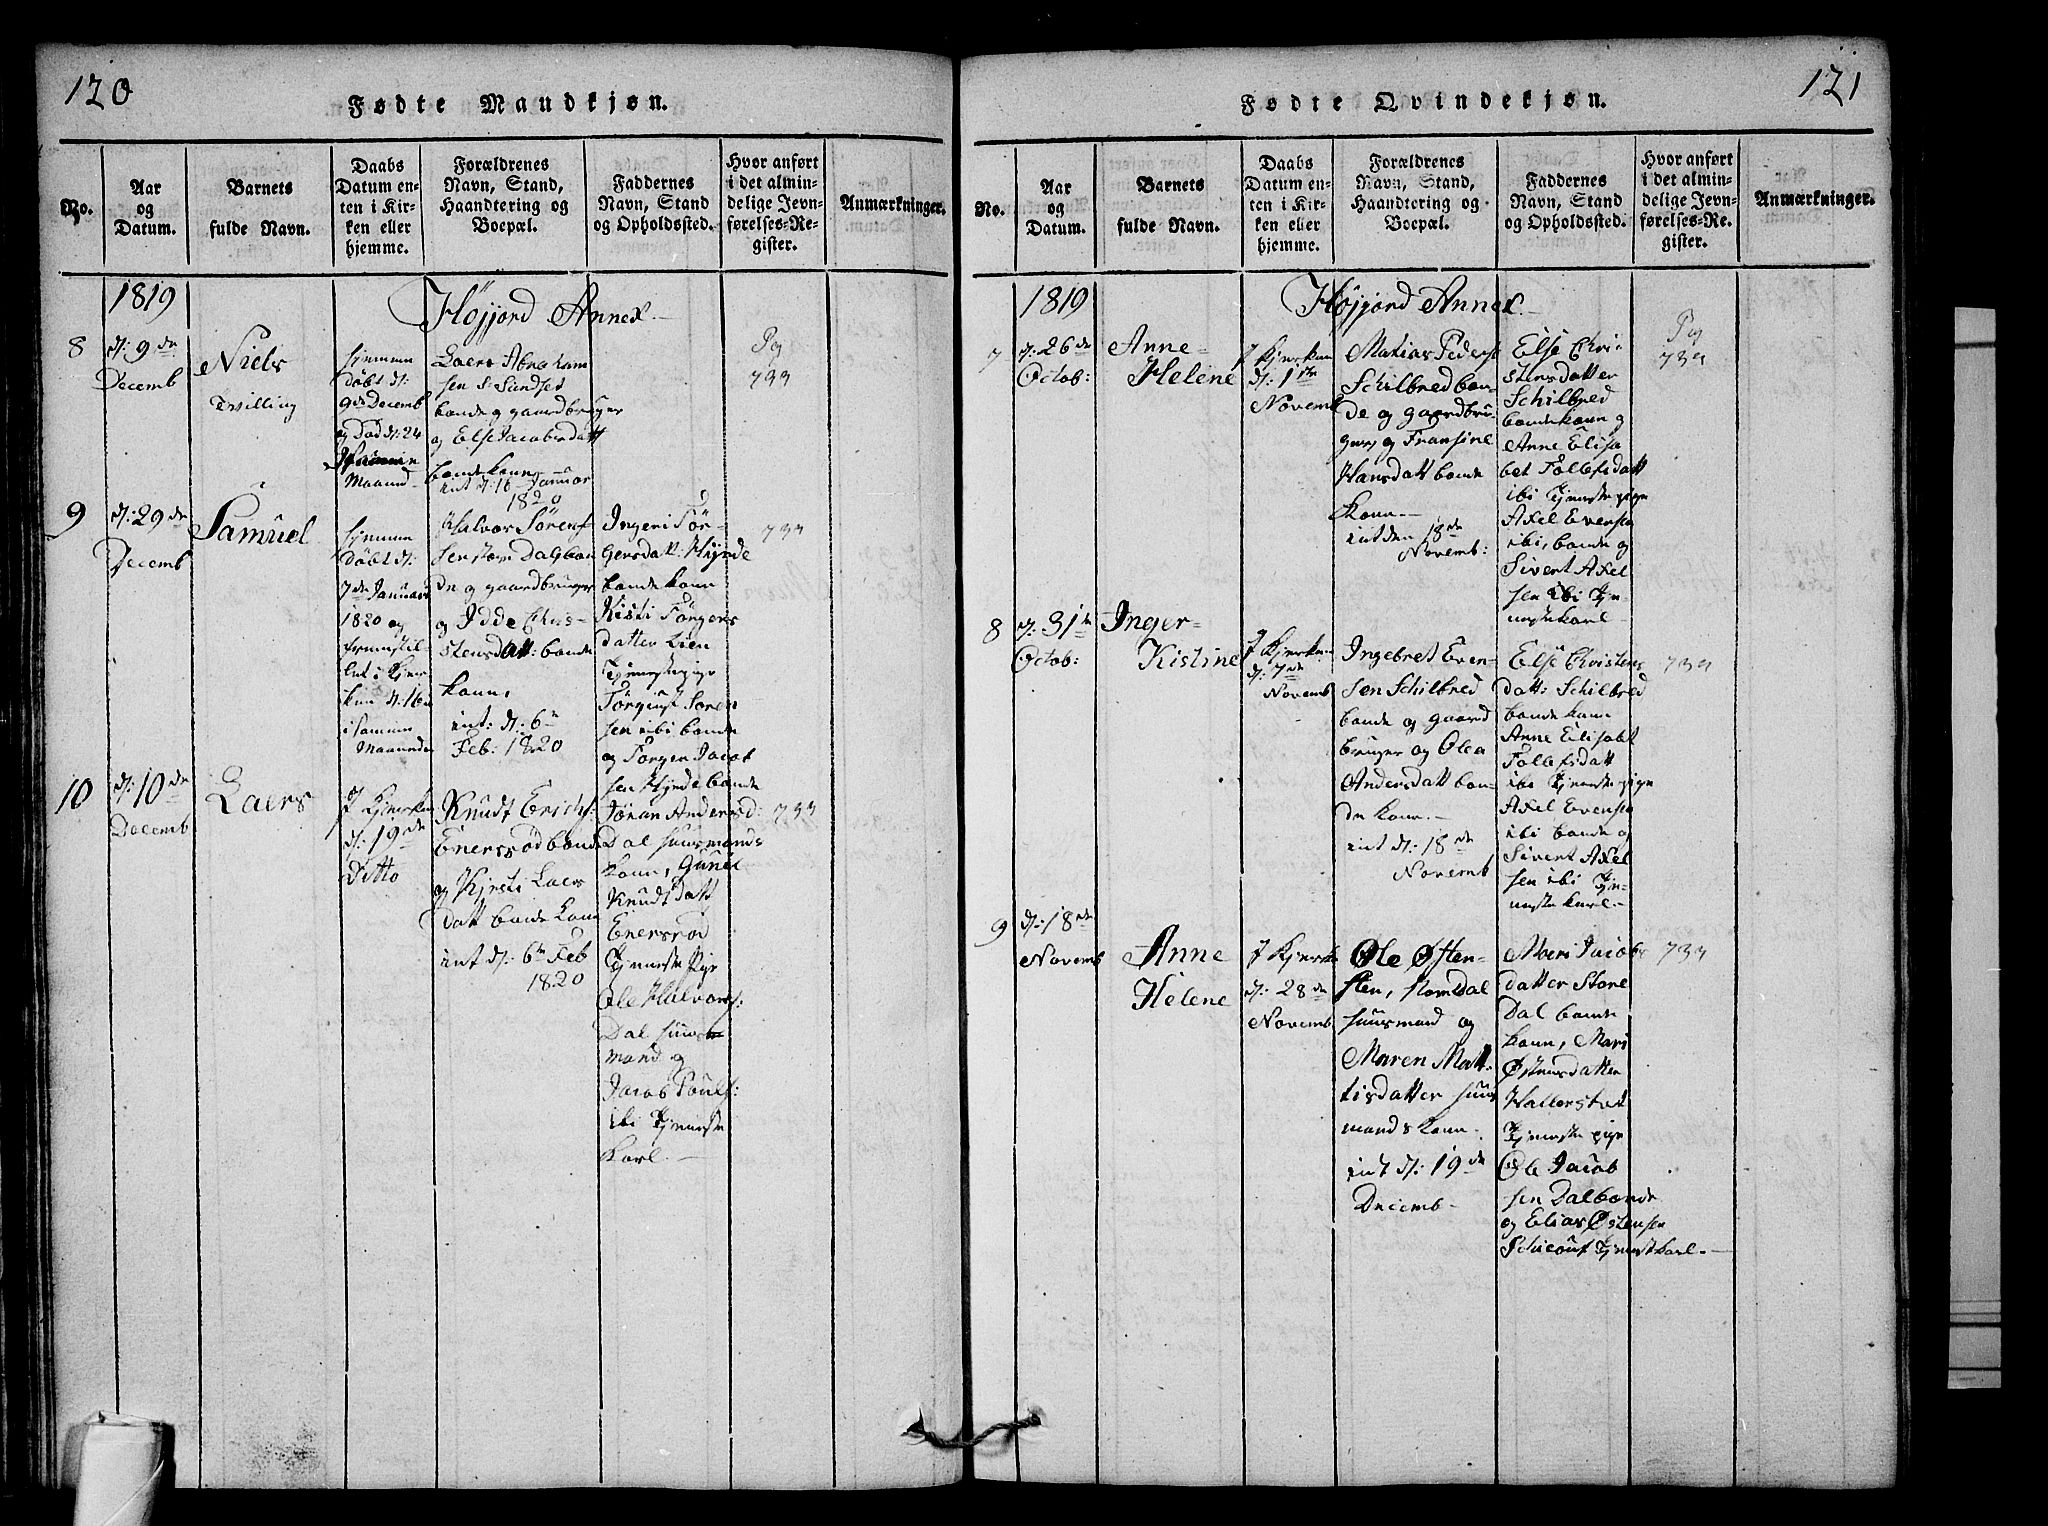 120
Fødte Mandkjøn.
No.
Aar
og
Datum.
Barnets
fulde Navn.
Daabs
Datum en-
ten i Kir-
ken eller
hjemme.
Forældrenes
Navn, Stand,
Haandtering og
Boepæl.
Faddernes
Navn, Stand
og Opholdssted.
Hvor anført
i det almin-
delige Jevn-
førelses-Re-
gister.
Anmærkninger.
1819
Høijord Annex.
8
d: 9de
Decemb
Niels
Tvilling
hjemme
døbt d:
9de Decemb
og død d: 24
samme
Maaned
Laers Abraham
sen S: Sundset
bonde og gaardbruger
og Else Jacobsdatt
bondekone
int d: 16 Januar
1820
Pag
733
9
d: 29de
Decemb
Samuel
hjemme
døbt d:
7de Januari
1820 og
fremstil-
let i Kjer
ken d: 16
i samme
Maaned
Halvor Sörens
sen store Dal bon
de og gaardbruger
og Idde Chri-
stensdatt: bonde
kone,
int: d: 6te
Feb: 1820
Ingeri Jör-
gensdatt: Hynde
bonde kone
Kisti Jörgens
datter Lien
Tjenestepige
Törgiust Sören
sen ibi bonde
og Jörgen Jacob
sen Hynde bonde
733
10
d: 10de
Decemb
Laers
I Kjerken
d: 19de
Ditto
Knudt Erichs:
Enersröd bonde
og Kjersti Laers
datt bonde kone
int d: 6te Feb
1820
Jöran Andersd:
Dal huusmands
kone, Gunil
Knudtdatt
Enersröd
Tjeneste Pige
Ole Halvors:
Dal huus
mand og
Jacob Pouls:
ibi Tjeneste
karl.
733
121
Fødte Qvindekjøn.
No.
Aar
og
Datum.
Barnets
fulde Navn.
Daabs
Datum en-
ten i Kir-
ken eller
hjemme.
Forældrenes
Navn, Stand,
Haandtering og
Boepæl.
Faddernes
Navn, Stand
og Opholdssted.
Hvor anført
i det almin-
delige Jevn-
førelses-Re-
gister.
Anmærkninger.
1819
Høijord Annex.
7
d: 26de
Octob:
Anne-
Helene
I Kjerken
d: 1ste
Novemb
Matias Peders
Schilbred bon-
de og gaardbru-
ger og Fransine
Hansdatt bonde
kone.-
int den 18de
Novemb:
Else Chri-
stensdatter
Schilbred
bondekone og
Anne Elisa
bet Tollefsdatt
ibi Tjenestepige
Axel Evensen
ibi, bonde og
Sivert Axel
sen ibi Tje-
nestekarl-
Pag
733
8
d: 31te
Octob:
Inger-
Kistine
I Kjerken
d: 7de
Novemb
Ingebret Even-
sen Schilbred
bonde og gaard
bruger og Olea
Andersdatt bon-
de kone.-
int d: 18de
Novemb
Else Christens
datt: Schilbred
bonde kone
Anne Elisabt
Tollefsdatt
ibi Tjenestepige
Axel Evensen
ibi bonde og
Sivert Axel
sen ibi Tje-
neste karl.-
733
9
d: 18de
Novemb
Anne
Helene
I Kjerken
d: 28de
Novemb
Ole Øften-
sten, storedal
huusmand og
Maren Mat-
tisdatter huus
mands kone.
int d: 19de
Decemb-
Maeri Jacobs
datter Store
Dal bonde
kone, Mari
Østensdatter
Hallerstat
Tjeneste pige
Ole Jacob
sen Dal bonde
og Elias Østensen
Tjenestkarl.-
733